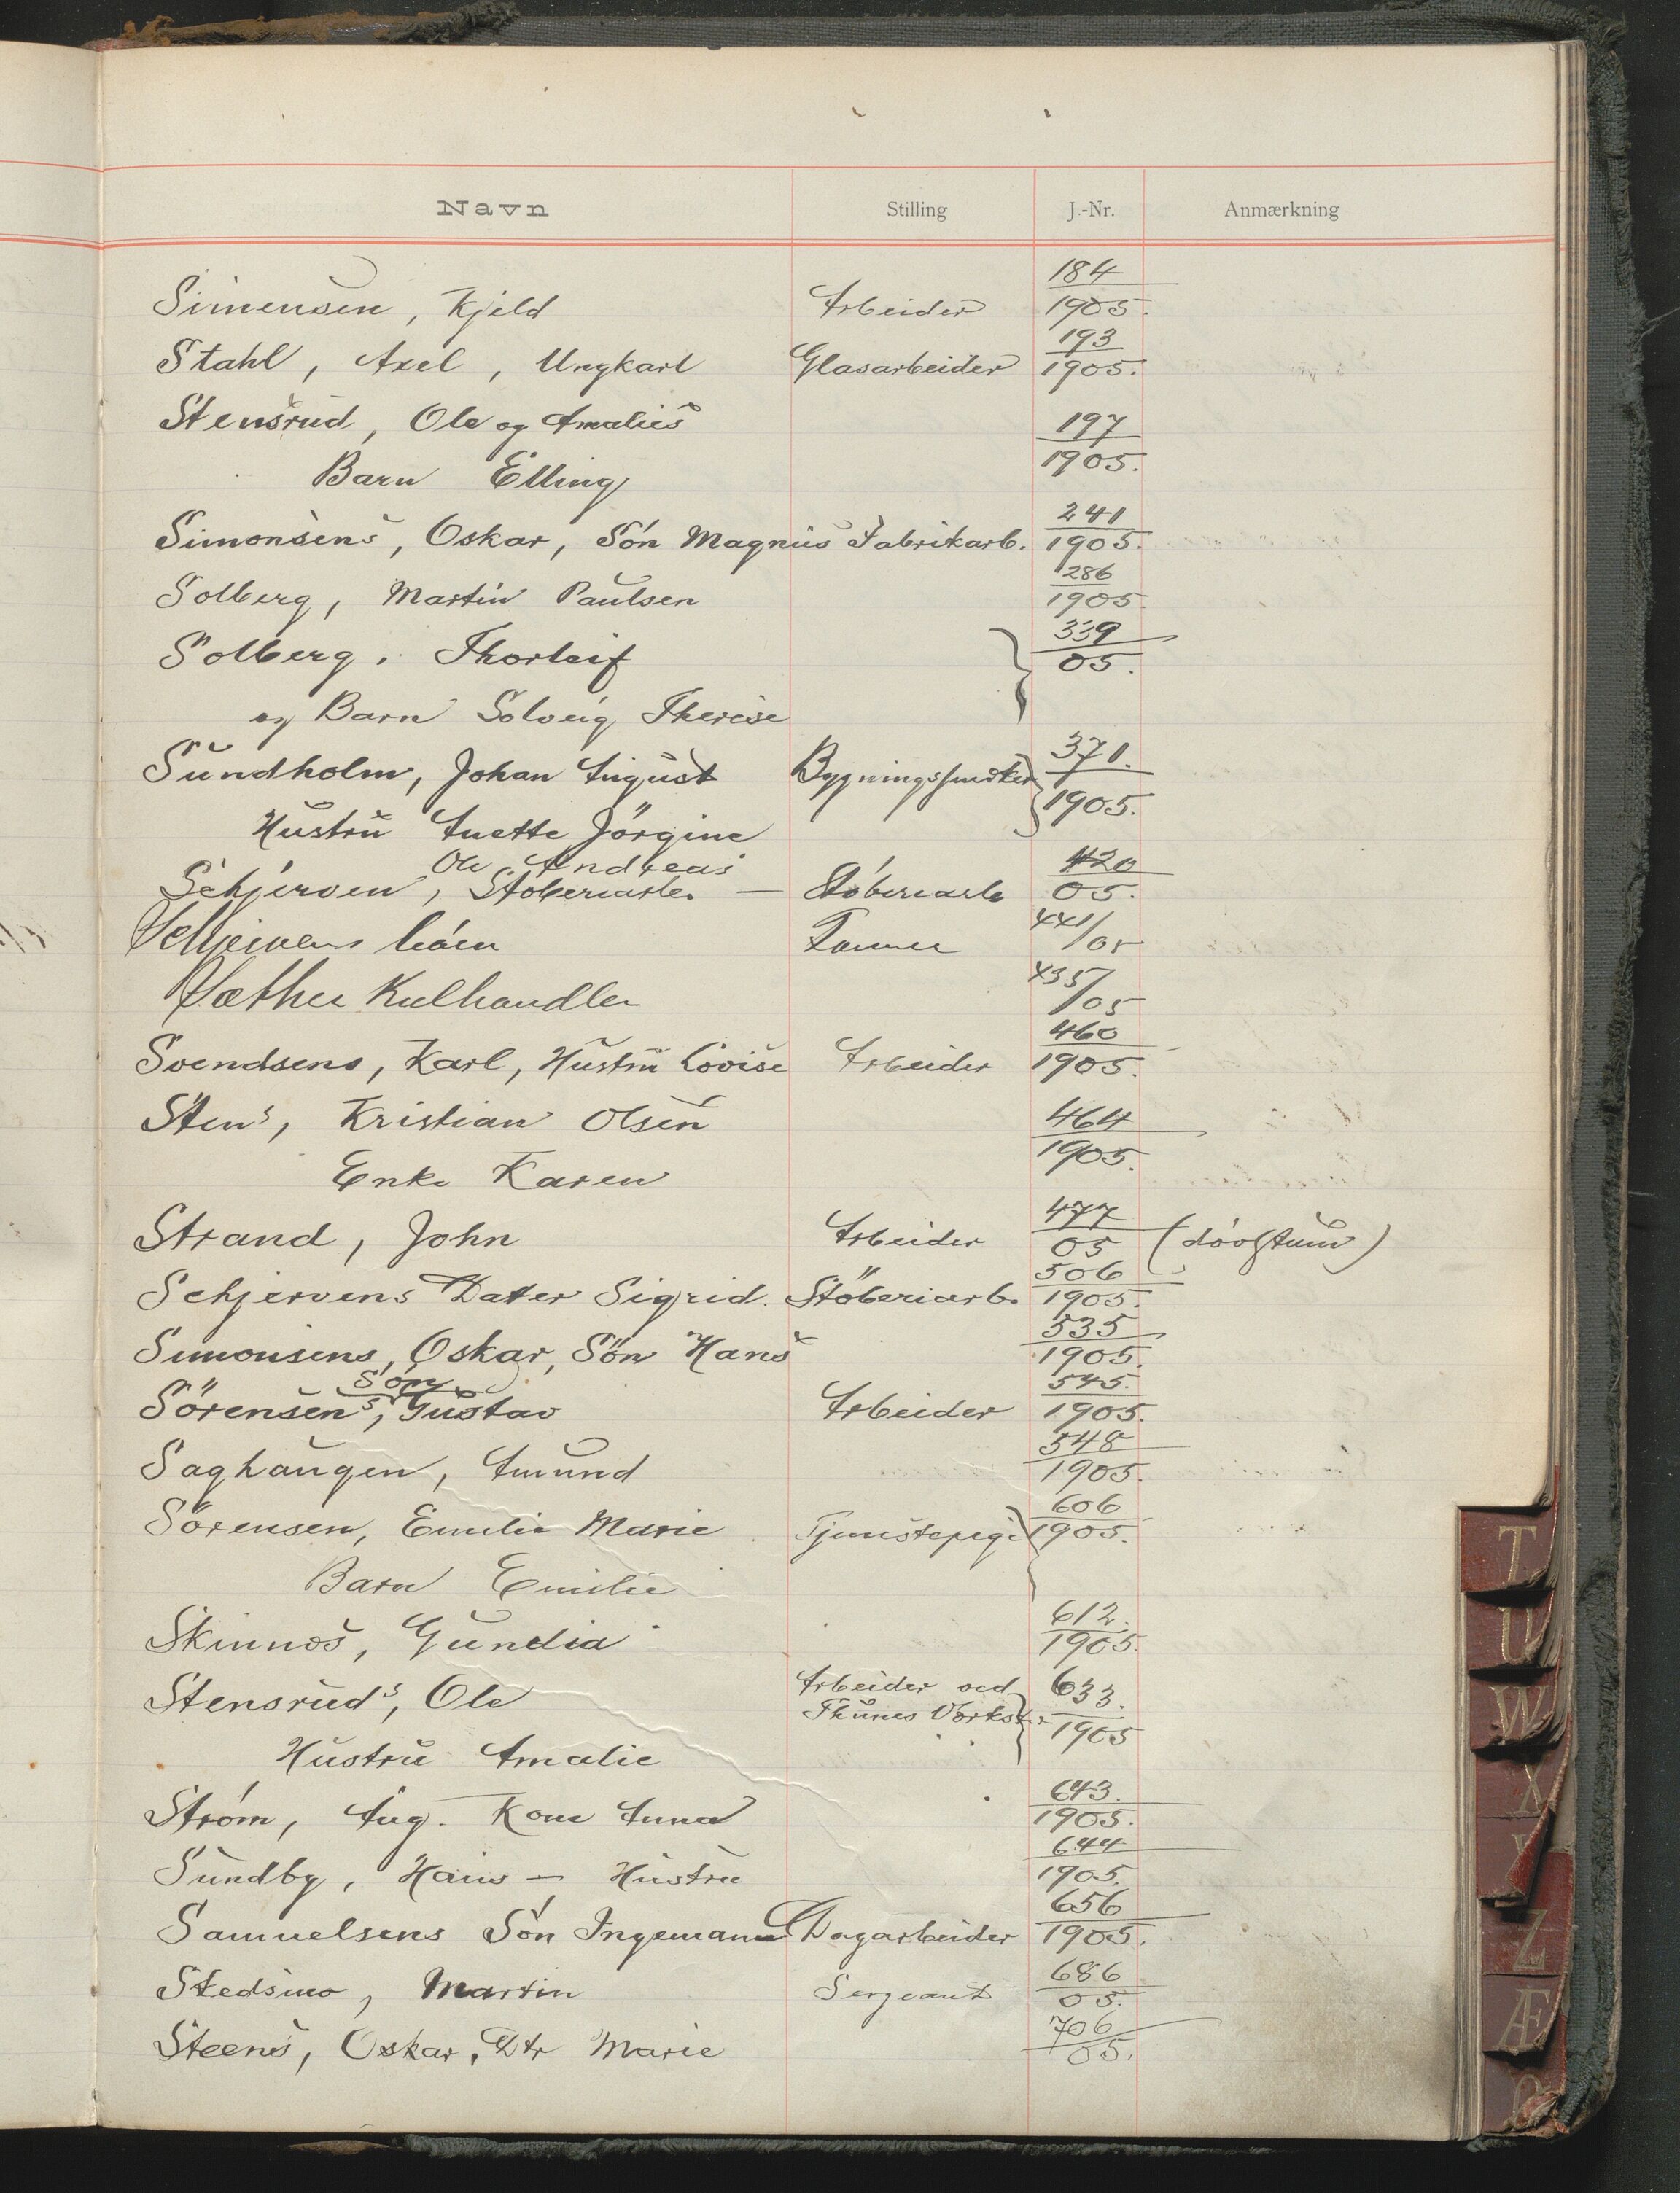 Navn Stilling J.-Nr. Anmærkning
Simensen, Kjeld Arbeider 184/1905.
Stahl, Axel, Ungkarl Glasarbeider 193/1905.
Stensrud, Ole og Amalies 197/1905.
Barn Elling
Simonsens, Oskar, Sön Magnus Fabrikarb. 241/1905.
Solberg, Martin Paulsen 286/1905
Solberg, Thorleif 339/05.
og Barn Solveig Therese
Sundholm, Johan August 371./1905.
Hustru Anette Jörgine
Ole Andreas
Schjerven, Støberiarb. — Støberiarb 420/05.
Schjervens 441/05
Sæther Kulhandler 435/05
Svendsens, Karl, Hustru Lovise Arbeider 460/1905.
Stens, Kristian Olsen 464/1905.
Enke Karen
Strand, John Arbeider 477/05 (døvstum)
Schjervens Datter Sigrid. Stöberiarb. 506/1905.
Simonsens, Oskar, Sön Hans 535/1905.
Søn
Sörensens, Gustav Arbeider 545./1905.
Saghaugen, Amund 548/1905.
Sörensen, Emilie Marie Tjenestepige 606/1905.
Barn Emilie
Skinnes, Gundia 612./1905.
Stensruds, Ole Arbeider ved 633./1905
Thunes Værksted
Hustru Amalie
Strøm, Aug. Kone Anna 643./1905.
Sundby, Hans — Hustru 644/1905.
Samuelsens Søn Ingemann Dagarbeider 656/1905.
Stedsmo, Martin Sergeant 686/05.
Steens, Oskar, Dtr Marie 706/05.
T
U
W
X
Y
Z
Æ
Ø